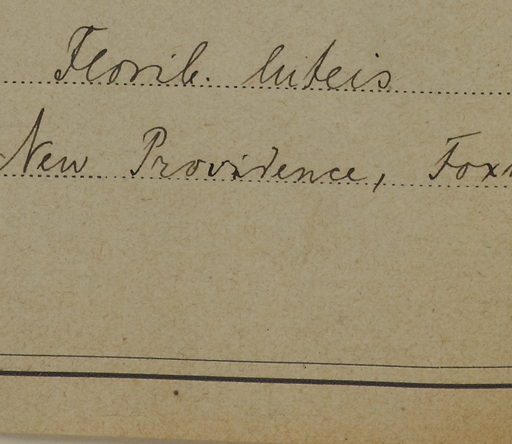 Florib. luteis
New Providence, Fox